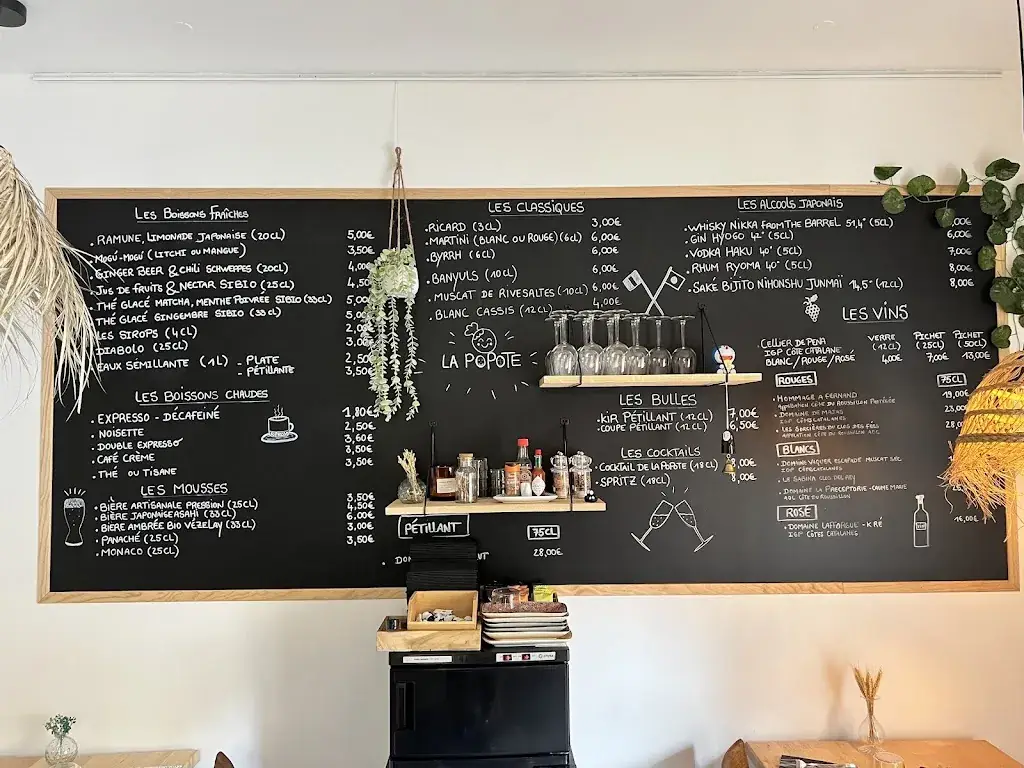 LES BOISSONS FRAÎCHES
. RAMUNE, LIMONADE JAPONAISE (20CL) 5,00€
. MOGU-MOGU (LITCHI OU MANGUE) 3,50€
. GINGER BEER & CHILI SCHWEPPES (20CL)
. JUS DE FRUITS & NECTAR SIBIO (25CL) 4,50
. THÉ GLACÉ MATCHA, MENTHE POIVRÉE SIBIO (33CL)
. THÉ GLACÉ GINGEMBRE SIBIO (33CL)
LES SIROPS (4CL)
DIABOLO (25CL)
EAUX SEMILLANTE (1L) - PLATE
- PÉTILLANTE 3,50€
LES BOISSONS CHAUDES
. EXPRESSO - DÉCAFEINÉ 1,80€
. NOISETTE 2,50€
. DOUBLE EXPRESSO 3,60€
. CAFÉ CRÈME 3,50€
. THÉ OU TISANE 3,50€
LES MOUSSES
. BIÈRE ARTISANALE PRESSION (25CL) 3,50€
. BIÈRE JAPONAISE ASAHI (33CL) 4,50€
. BIÈRE AMBRÉE BIO VÉZELAY (33CL) 6,00€
. PANACHÉ (25CL) 3,00€
. MONACO (25CL) 3,50€
LES CLASSIQUES
. RICARD (3CL) 3,00€
. MARTINI (BLANC OU ROUGE) (6CL) 6,00€
. BYRRH (6CL) 6,00€
. BANYULS (10CL) 6,00€
. MUSCAT DE RIVESALTES (10CL) 6,00€
. BLANC CASSIS (12CL) 4,00€
LA POPOTE
PÉTILLANT 75CL
. DOM NT 28,00€
LES BULLES
. KIR PÉTILLANT (12CL) 7,00€
. COUPE PÉTILLANT (12CL) 6,50€
LES COCKTAILS
. COCKTAIL DE LA POPOTE (18CL) ,00€
. SPRITZ (18CL) 8,00€
LES ALCOOLS JAPONAIS
. WHISKY NIKKA FROM THE BARREL 51,4° (5CL) ,00€
. GIN HYOGO 42° (5CL) 6,00€
. VODKA HAKU 40° (5CL) 7,00€
. RHUM RYOMA 40° (5CL) 8,00€
. SAKE BIJITO NIHONSHU JUNMAÏ 14,5° (12CL) 8,00€
LES VINS
. CELLIER DE PENA VERRE PICHET PICHET
IGP CÔTE CATALANE (12CL) (25CL) (50CL)
BLANC/ROUGE/ROSÉ 4,00€ 7,00€ 13,00€
ROUGES 75CL
. HOMMAGE A FERNAND 19,00€
. DOMAINE DE MAJAS 23,00
IGP CÔTES CATALANES
. LES SORCIÈRES DU CLOS DES FÉES 28,0
APPELLATION CÔTE DU ROUSSILLON AOC
BLANCS
. LA SABINA CLOS DEL REY
. DOMAINE LA PRECEPTORIE - COUME MARIE
AOC CÔTE DU ROUSSILLON
ROSÉ
. DOMAINE LAFORGUE - K RÉ 16,00€
IGP CÔTES CATALANES